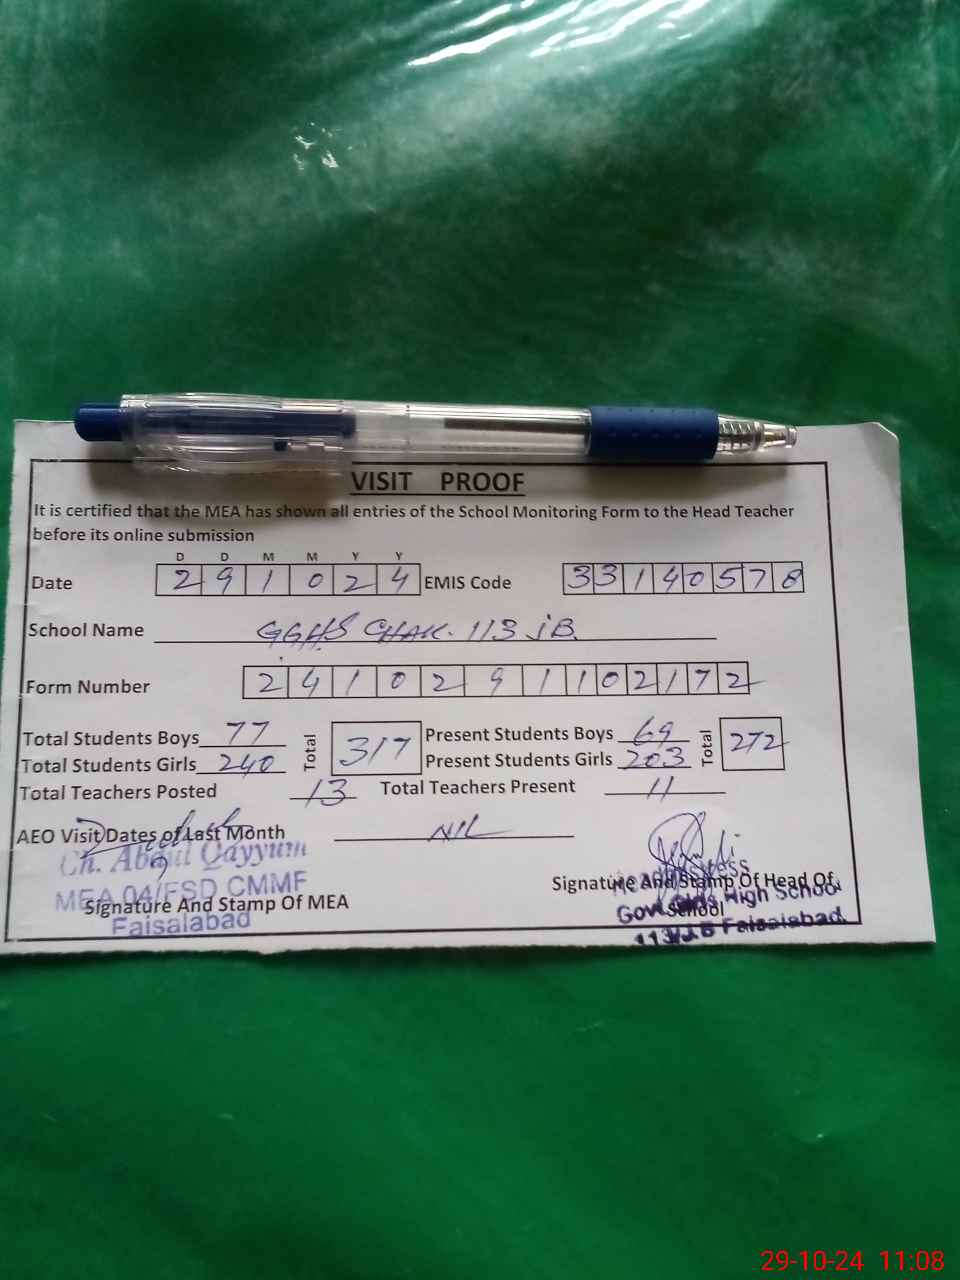 VISIT PROOF
It is certified that the MEA has shown all entries of the School Monitoring Form to the Head Teacher
before its online submission
D D M M Y Y
Date 2 9 1 0 2 4 EMIS Code 3 3 1 4 0 5 7 8
School Name GGHS CHAK. 113 JB.
Form Number 2 4 1 0 2 9 1 1 0 2 1 7 2
Total Students Boys 77 Total 317 Present Students Boys 69 Total 272
Total Students Girls 240 Present Students Girls 203
Total Teachers Posted 13 Total Teachers Present 11
AEO Visit Dates of Last Month NIL
Ch. Abdul Qayyum
MEA 04/FSD CMMF
Faisalabad
Signature And Stamp Of MEA
Signature And Stamp Of Head Of
School
Headmistress
Govt Girls High School
113/J.B Faisalabad.
29-10-24 11:08